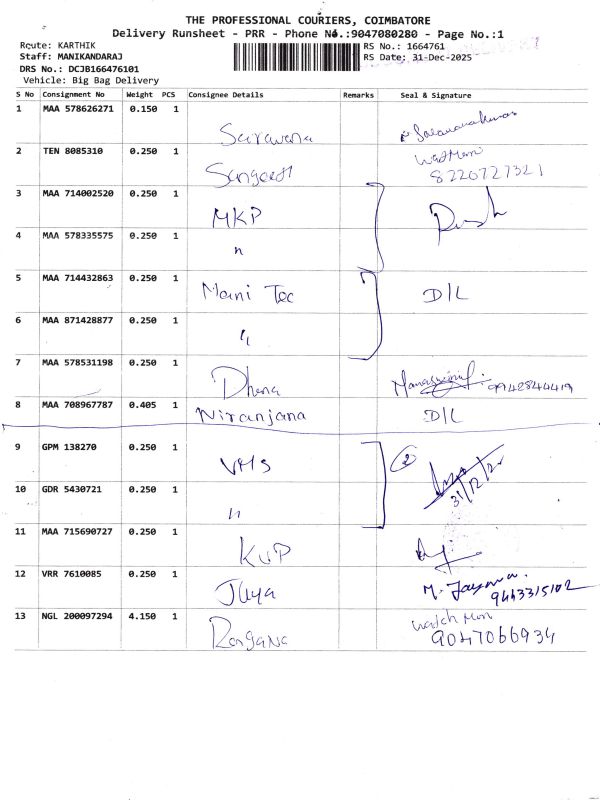 THE PROFESSIONAL COURIERS, COIMBATORE
Delivery Runsheet - PRR - Phone No.:9047080280 - Page No.:1
Route: KARTHIK
RS No.: 1664761
Staff: MANIKANDARAJ
RS Date: 31-Dec-2025
DRS No.: DCJB166476101
Vehicle: Big Bag Delivery
S No Consignment No Weight PCS Consignee Details Remarks Seal & Signature
1 MAA 578626271 0.150 1 Saravana Saravanakumar
2 TEN 8085310 0.250 1 Sangeeth Watman
8220727321
3 MAA 714002520 0.250 1 MKP
4 MAA 578335575 0.250 1 "
5 MAA 714432863 0.250 1 Mani Tec D/L
6 MAA 871428877 0.250 1 "
7 MAA 578531198 0.250 1 Dhana 9942844419
8 MAA 708967787 0.405 1 Niranjana D/L
9 GPM 138270 0.250 1 VMS 2
31/12/2
10 GDR 5430721 0.250 1 "
11 MAA 715690727 0.250 1 KVP
12 VRR 7610085 0.250 1 Jaya M. Jayama.
9443315102
13 NGL 200097294 4.150 1 Rangana Watch Man
9047066934